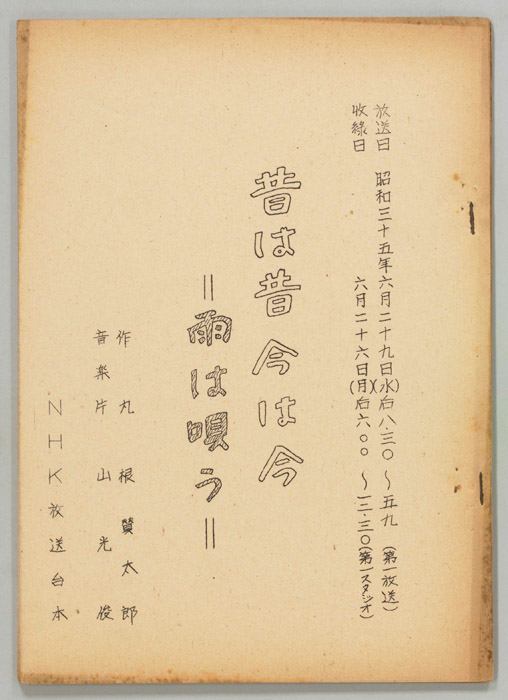 放送日 昭和三十五年六月二十九日(水)后八.三〇～五九(第一放送)
收録日 六月二十六日(月)后六.〇〇～一二.三〇(第一スタジオ)
昔は昔 今は今
＝雨は唄う＝
作 丸根賛太郎
音楽 片山光俊
NHK放送台本